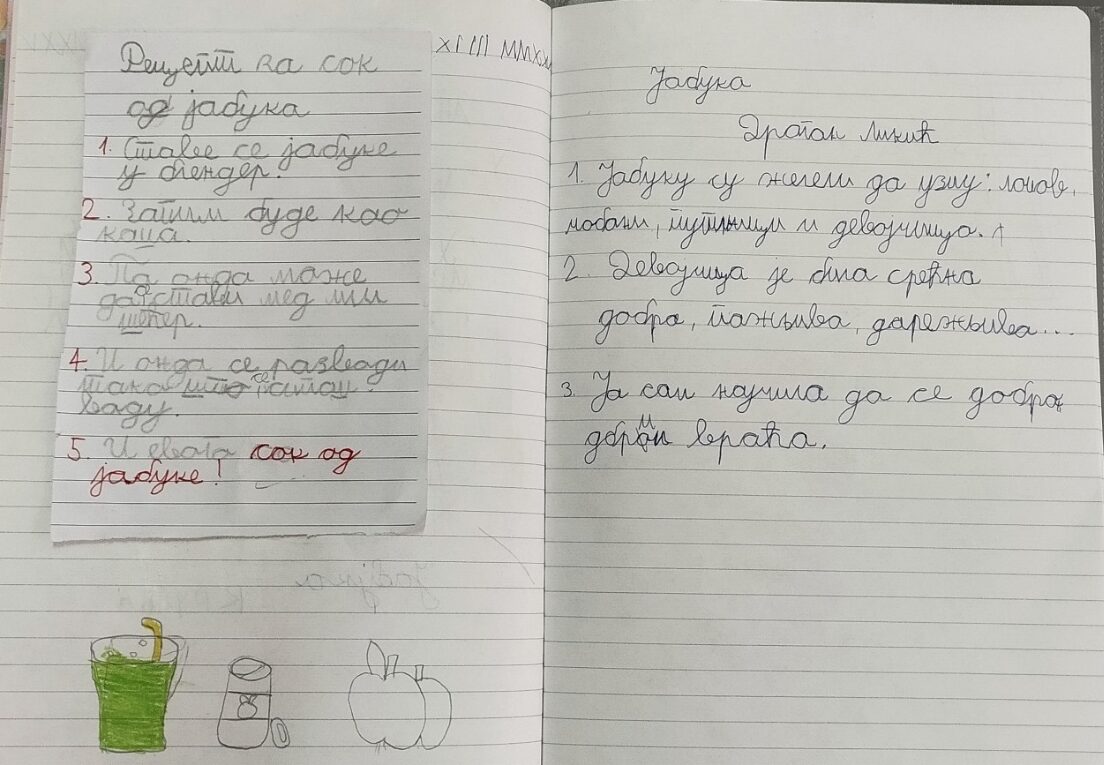 Рецепт за сок
од јабука
1. Ставе се јабуке
у блендер.
2. Затим буде као
каша.
3. Па онда може
да се стави мед или
шећер.
4. И онда се разблади
тако што се
ваду.
5. И евога сок од
јабуке!
XIII MMXX
Јабука
Драган Лукић
1. Јабуку су желели да узму: лопов,
мобали, путници и девојчица.
2. Девојчица је била срећна
добра, пажљива, дарежљива...
3. Ја сам научила да се добро
добрим враћа.